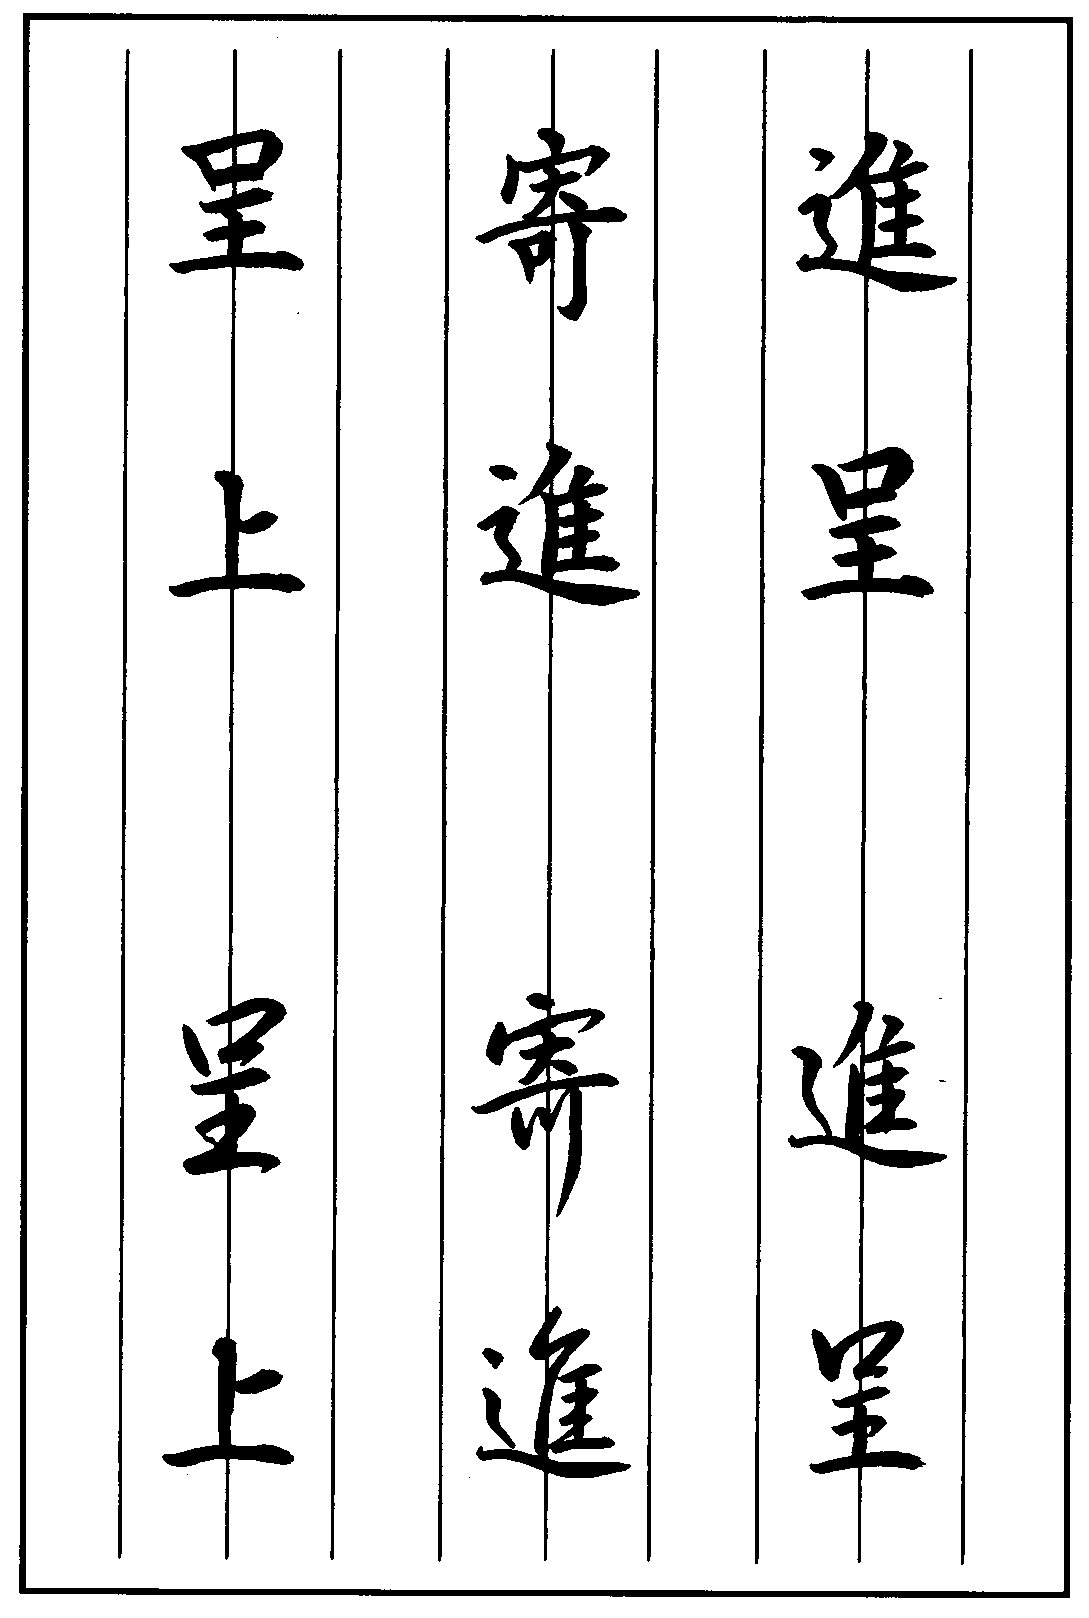 進呈 進呈
寄進 寄進
呈上 呈上